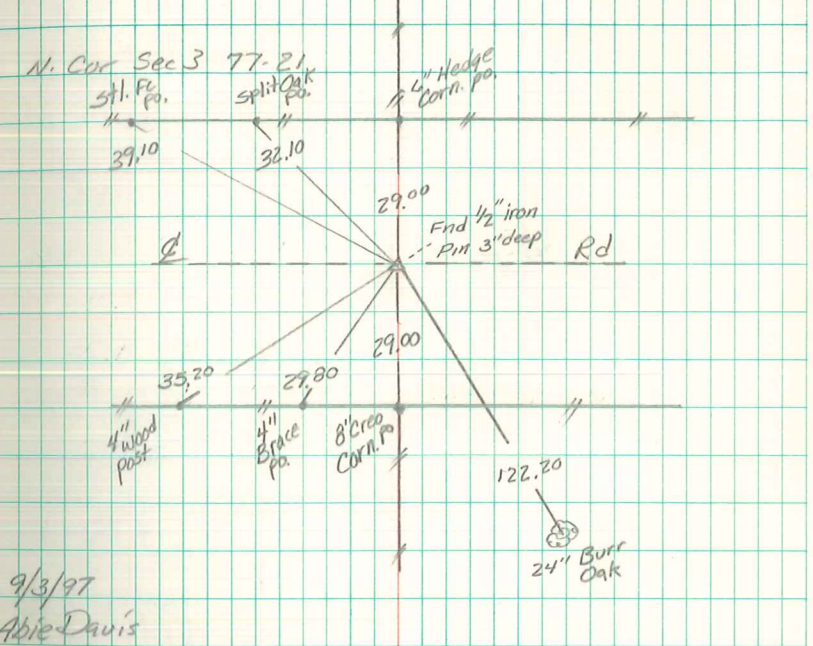 N. Cor Sec 3 77-21
stl. Fc
po.
split Oak
po.
6" Hedge
Corn. po.
39.10
32.10
29.00
Fnd 1/2" iron
Pin 3" deep
℄
Rd
29.00
35.20
29.80
4" wood
post
4"
Brace
po.
8" Creo
Corn. po
122.20
24" Burr
Oak
9/3/97
Abie Davis